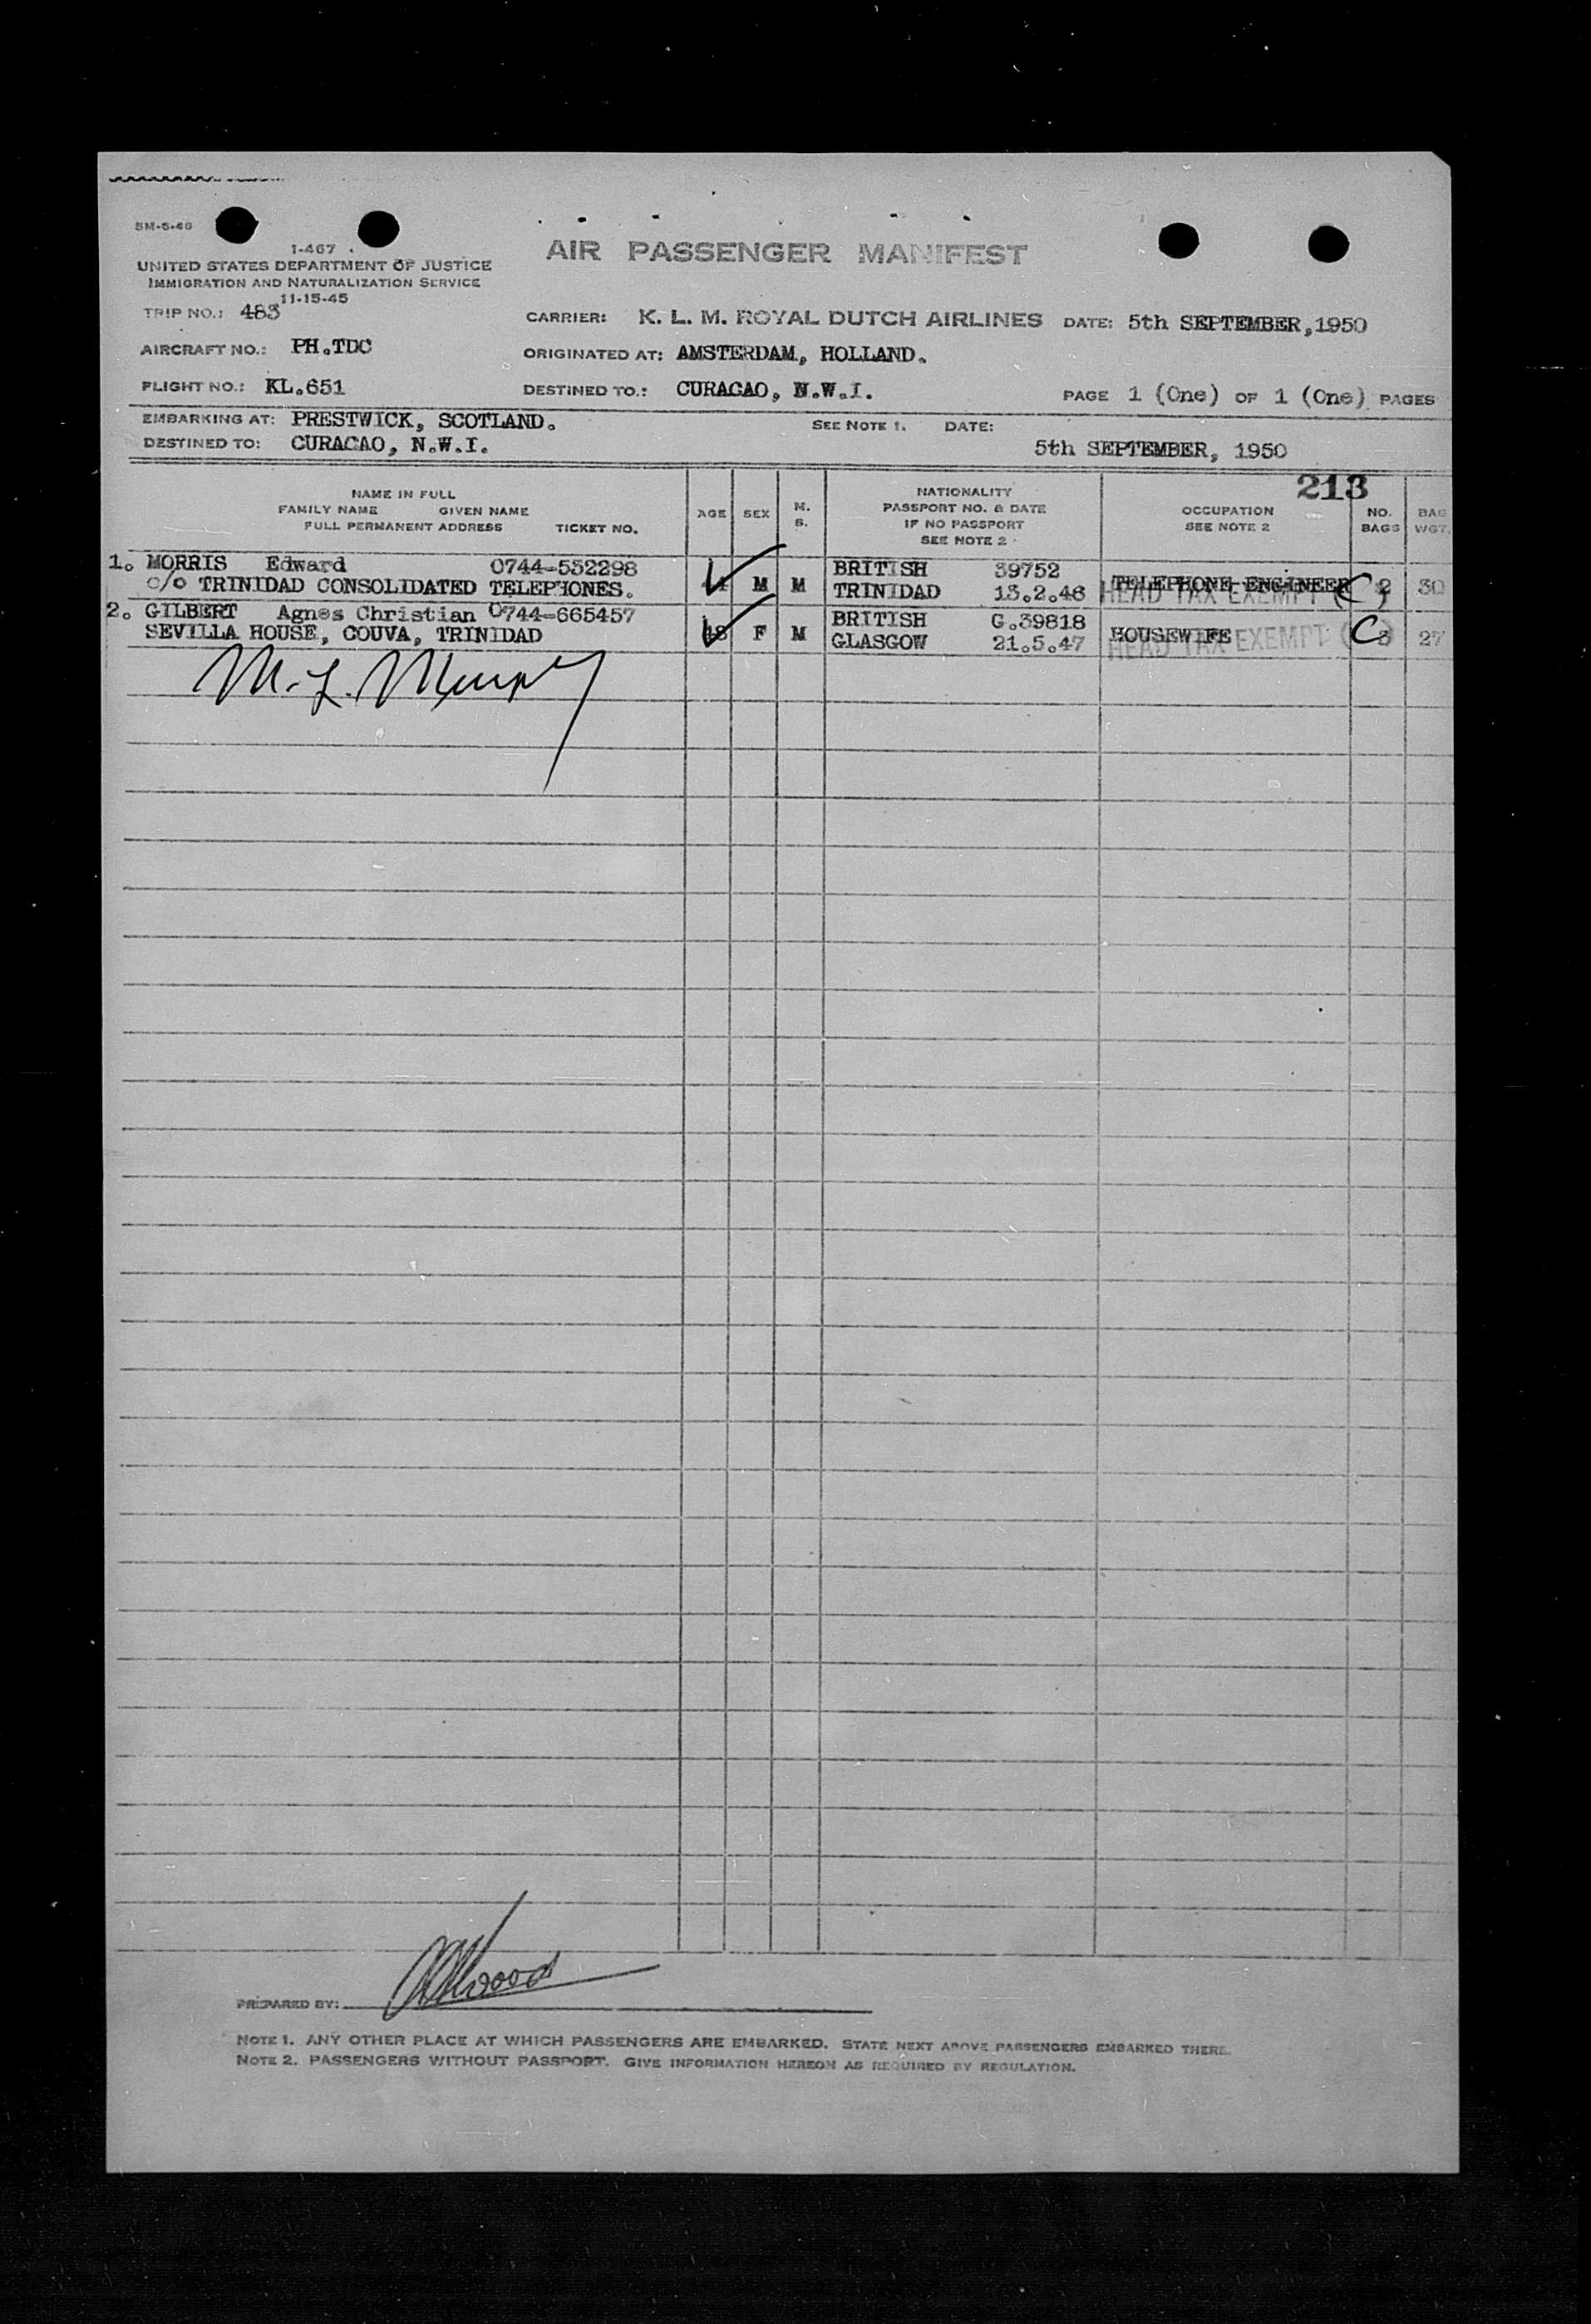 5M-5-48
1-467
UNITED STATES DEPARTMENT OF JUSTICE
IMMIGRATION AND NATURALIZATION SERVICE
11-15-45
AIR PASSENGER MANIFEST
TRIP NO.: 483
CARRIER: K. L. M. ROYAL DUTCH AIRLINES DATE: 5th SEPTEMBER, 1950
AIRCRAFT NO.: PH.TDC
ORIGINATED AT: AMSTERDAM, HOLLAND.
FLIGHT NO.: KL.651
DESTINED TO.: CURACAO, N.W.I.
PAGE 1 (One) OF 1 (One) PAGES
EMBARKING AT: PRESTWICK, SCOTLAND. SEE NOTE 1. DATE:
DESTINED TO: CURACAO, N.W.I. 5th SEPTEMBER, 1950
213
NAME IN FULL
FAMILY NAME GIVEN NAME
FULL PERMANENT ADDRESS TICKET NO.
AGE
SEX
M.
S.
NATIONALITY
PASSPORT NO. & DATE
IF NO PASSPORT
SEE NOTE 2
OCCUPATION
SEE NOTE 2
NO.
BAGS
BAG
WGT.
1. MORRIS Edward 0744-552298 BRITISH 39752
c/o TRINIDAD CONSOLIDATED TELEPHONES. M M TRINIDAD 13.2.48 TELEPHONE ENGINEER 2 30
HEAD TAX EXEMPT (C)
2. GILBERT Agnes Christian 0744-665457 BRITISH G.39818
SEVILLA HOUSE, COUVA, TRINIDAD F M GLASGOW 21.5.47 HOUSEWIFE 3 27
HEAD TAX EXEMPT (C)
PREPARED BY:
NOTE 1. ANY OTHER PLACE AT WHICH PASSENGERS ARE EMBARKED. STATE NEXT ABOVE PASSENGERS EMBARKED THERE.
NOTE 2. PASSENGERS WITHOUT PASSPORT. GIVE INFORMATION HEREON AS REQUIRED BY REGULATION.